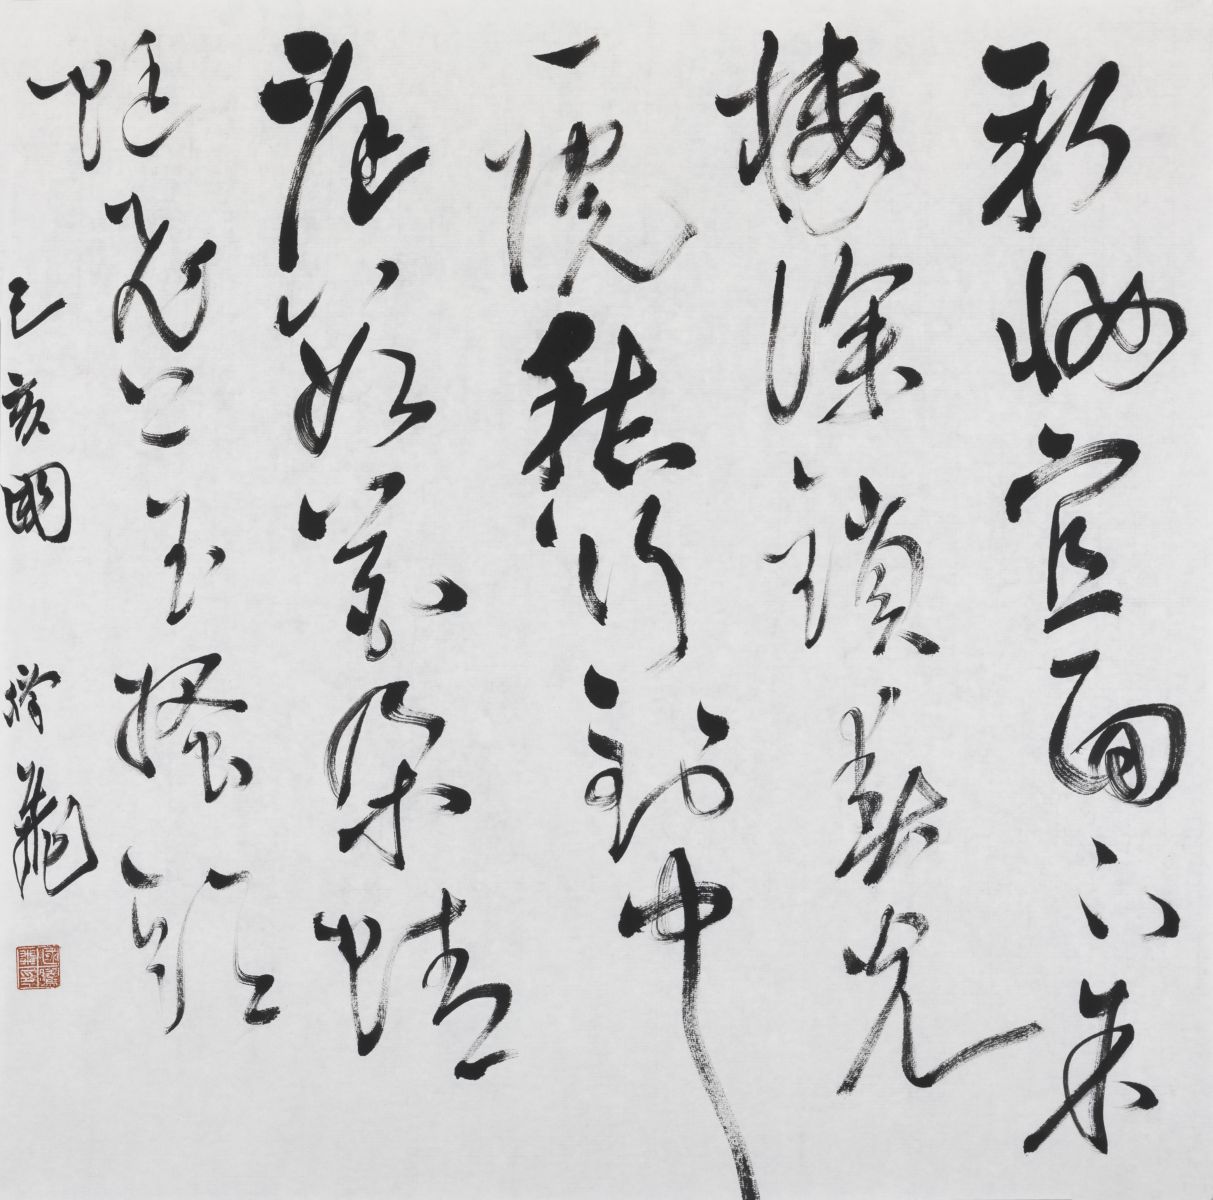 新妝宜面下朱
樓深鎖春光
一院愁行到中
庭數花朵蜻
蜓飛上玉搔頭
己亥國